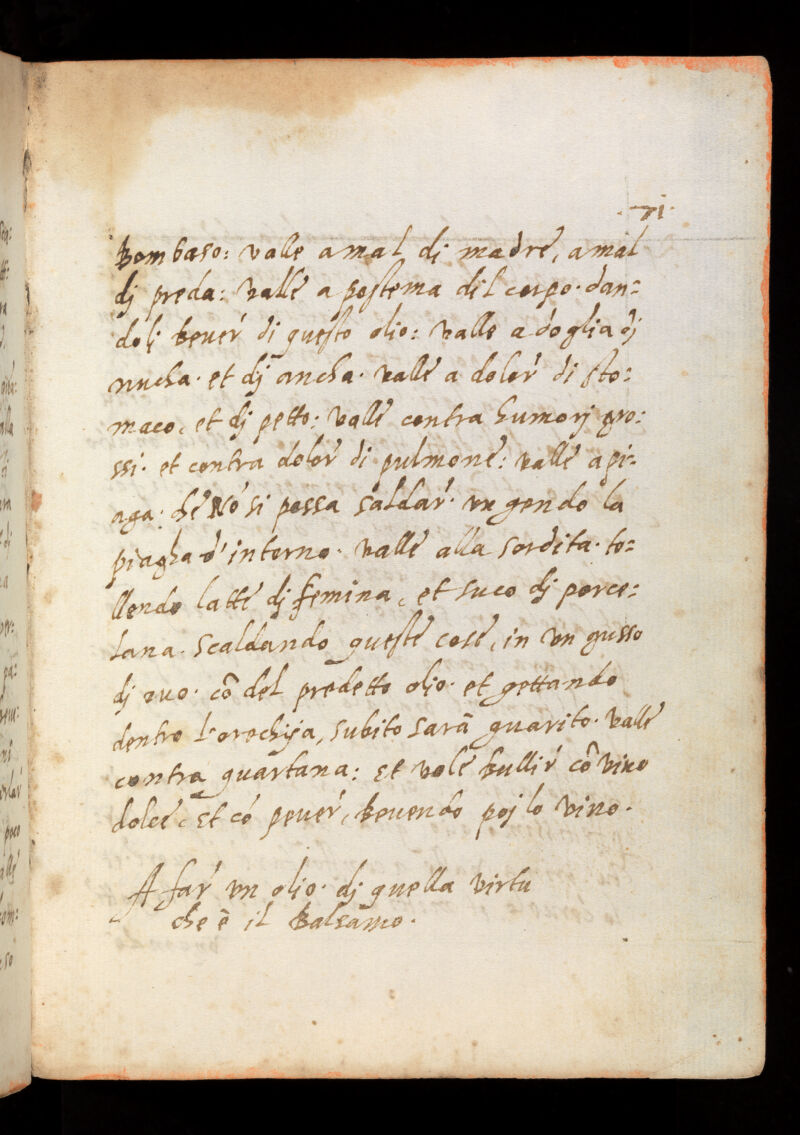 71.
Bombaso: valle a mal dj madre, a mal
dj preda: valle a postema dil corpo. dan=
dolj bever di questo olio: valle a doglia dj
nucha. et dj ancha. valle a dolor di sto=
maco, et dj petto: valle contra humorj gro=
ssi. et contra dolor di pulmone: valle a pi=
aga. che nō si possa saldar. ungendo la
piagha d'intorno. valle alla sordita. to=
llendo latte dj femina, et suco dj porce=
lana. scaldando queste cose, in un gusso
dj ovo. cō del predetto olio. et gettando
dentro l'orechija, subito sarā guarito. valle
contra quartana: et vole bullir cō vino
dolce, et cō pever, bevendo poj lo vino.
A far un olio. dj quella virtu
che è il Balsamo.